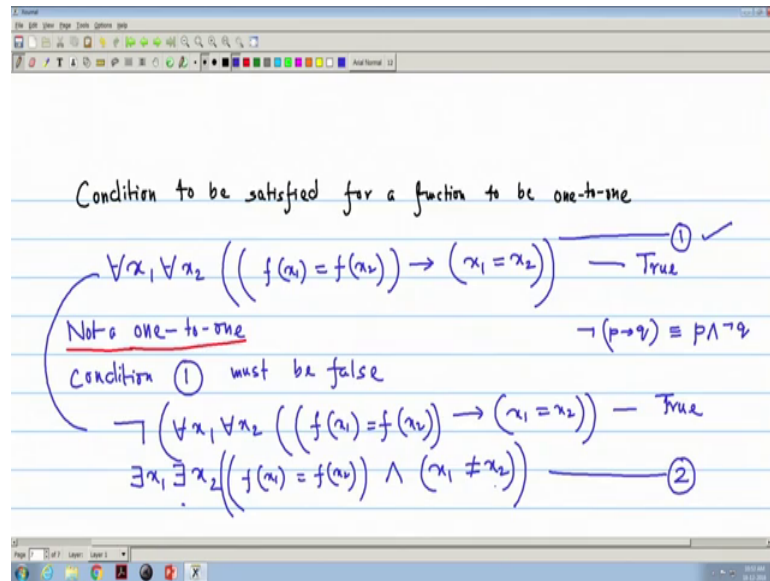 Journal
File Edit View Page Tools Options Help
Arial Normal 12
Condition to be satisfied for a function to be one-to-one
∀x₁ ∀x₂ ((f(x₁) = f(x₂)) → (x₁ = x₂)) — ① ✓
— True
Not a one-to-one
¬(p→q) ≡ p∧¬q
Condition ① must be false
¬(∀x₁ ∀x₂ ((f(x₁) = f(x₂)) → (x₁ = x₂)) — True
∃x₁ ∃x₂((f(x₁) = f(x₂)) ∧ (x₁ ≠ x₂)) — ②
Page 7 of 7 Layer: Layer 1